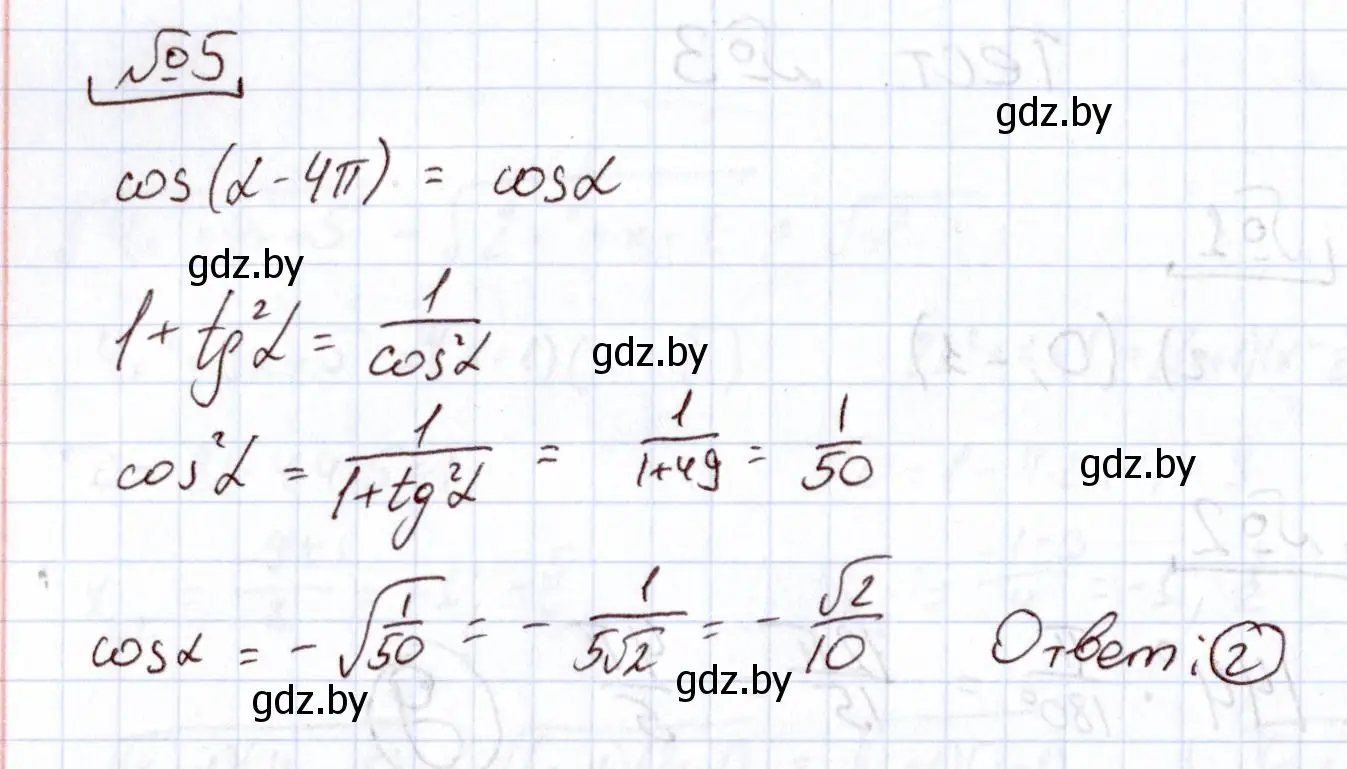 №5
cos(α-4π) = cosα
gdz.by
1+tg²α = 1/cos²α
gdz.by
cos²α = 1/(1+tg²α) = 1/(1+49) = 1/50
gdz.by
cosα = -√(1/50) = - 1/(5√2) = - √2/10 Ответ: 2
gdz.by
gdz.by
gdz.by